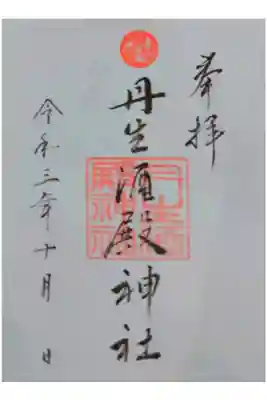 奉拝
丹生酒殿神社
令和三年十月 日